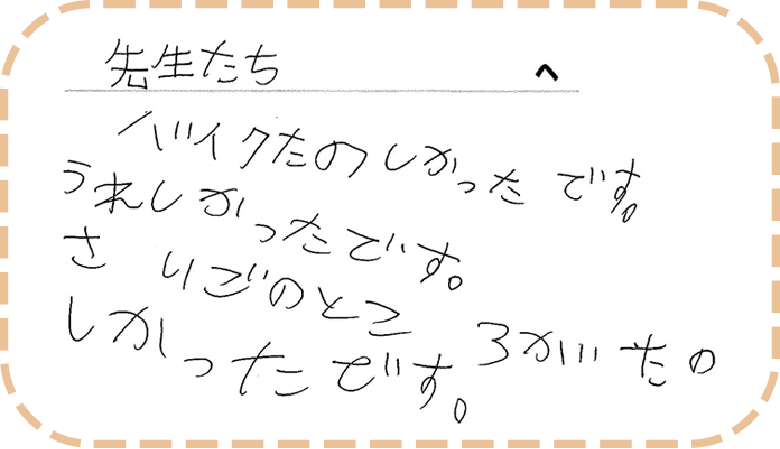 先生たち へ
バイクたのしかったです。
うれしかったです。
さ りごのとこ ろがいたの
しかったです。